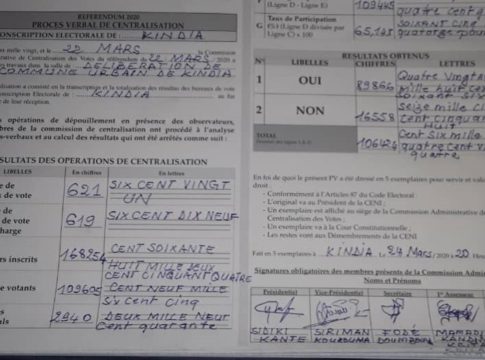 REFERENDUM 2020
PROCES VERBAL DE CENTRALISATION
CONSCRIPTION ELECTORALE DE : KINDIA
mille vingt, et le 22 MARS la Commission
de Centralisation des Votes du référendum du 22 MARS 2020 a
travaux dans la salle de DELIBERATION
COMMUNE URBAIN DE KINDIA
consiste en la transcription et la totalisation des résultats des bureaux de vote
conscription Electorale de KINDIA au fur
de leur réception.
opérations de dépouillement en présence des observateurs,
membres de la commission de centralisation ont procédé à l'analyse
et au calcul des résultats qui ont été arrêtés comme suit :
RESULTATS DES OPERATIONS DE CENTRALISATION
LIBELLES En chiffres En lettres
de vote 621 SIX CENT VINGT UN
619 SIX CENT DIX NEUF
inscrits 168254 CENT SOIXANTE
HUIT MILLE DEUX
CENT CINQUANTQUATRE
votants 109605 CENT NEUF MILLE
Six cent cinq
2940 DEUX MILLE NEUF
Cent quarante
(Ligne D - Ligne E) 109445
quatre cent
Taux de Participation
G (Ligne D divisée par
Ligne C) x 100
SOIXANT CINQ
RESULTATS OBTENUS
N° LIBELLES CHIFFRES LETTRES
1 OUI 89866 Quatre Vingt
mille huit cent
SOIXANT SIX
2 NON 16558 Seize mille
cent cinquante
HUIT
TOTAL 106424 Cent Six mille
quatre cent
quatre
En foi de quoi le présent PV a été dressé en 5 exemplaires pour servir et valoir
droit :
- Conformément à l'Article 87 du Code Electoral :
- L'original va au Président de la CENI
- Un exemplaire est affiché au siège de la Commission Administrative de
Centralisation des Votes ;
- Un exemplaire va à la Cour Constitutionnelle ;
- Les restes vont aux Démembrements de la CENI
Fait en 5 exemplaires à KINDIA 24 Mars 2020
Signatures obligatoires des membres présents de la Commission
Noms et Prénoms
Président(e) Vice-Président(e) Secrétaire 1er Assesseur
SIDIKI SIRIMAN FODE MAMADI
KANTE KOUROUMA DOUMBOUYA